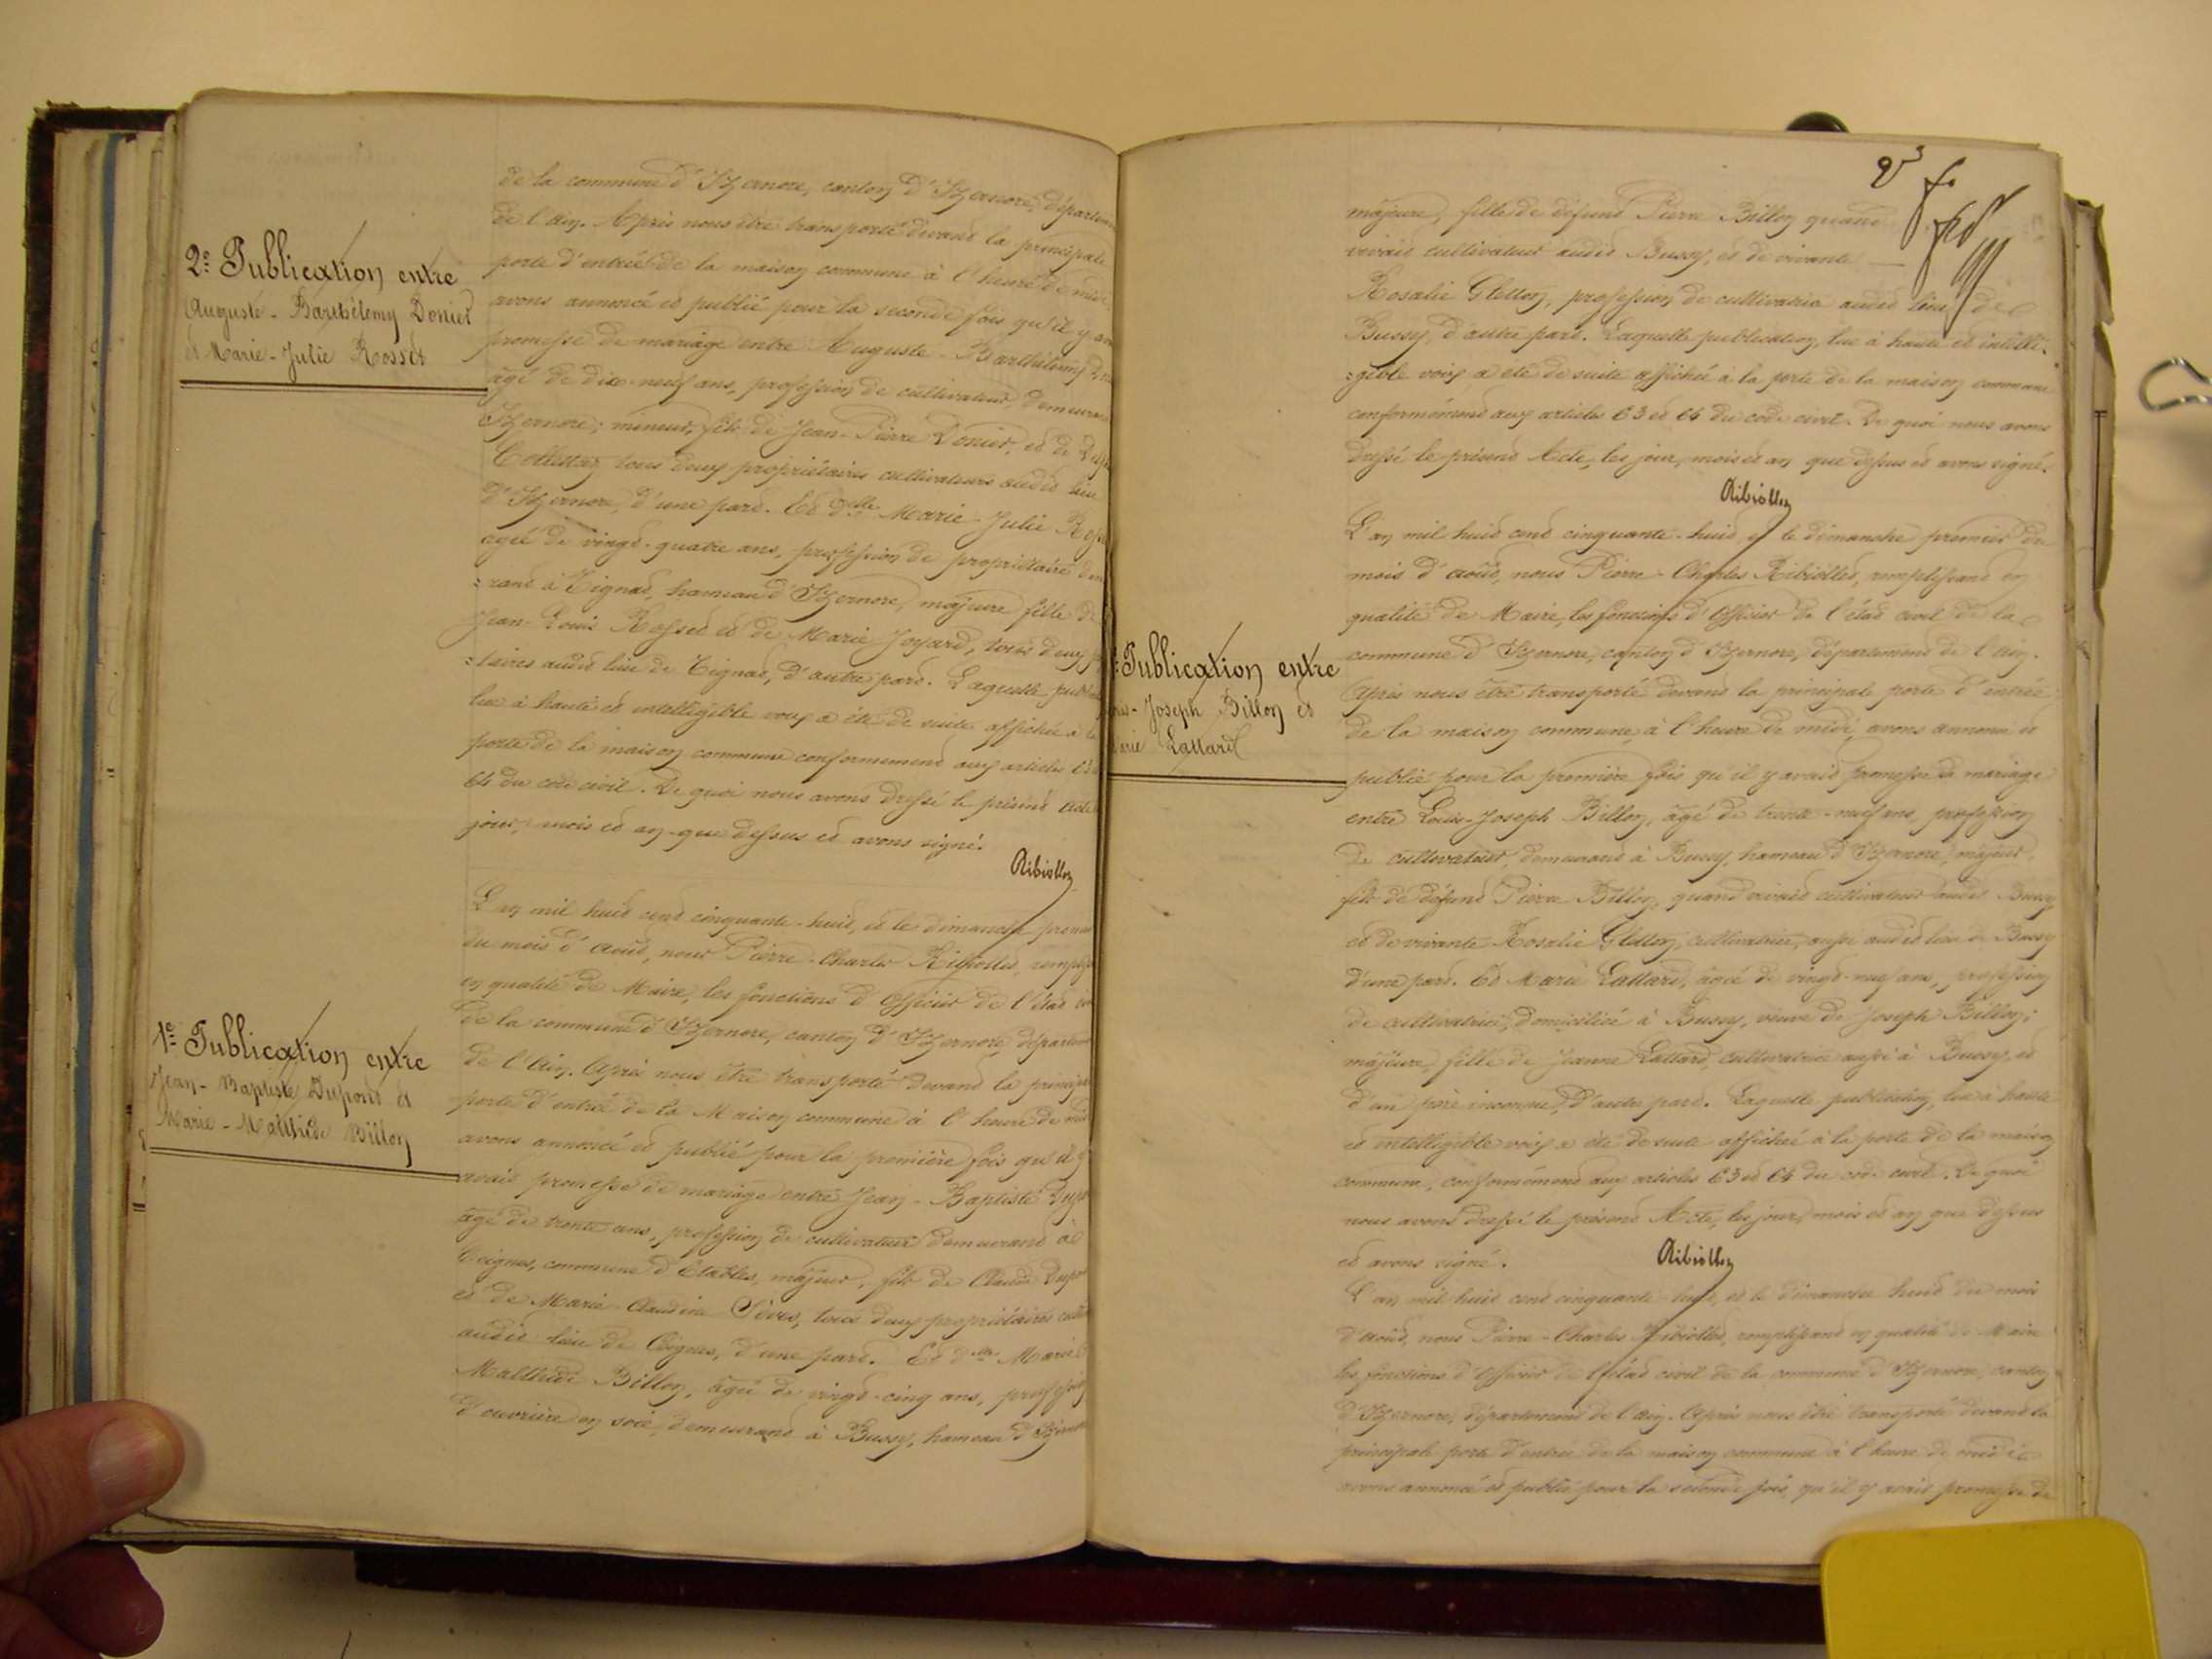 de la commune d'Izernore, canton d'Izernore, départem
de l'Ain. Après nous être transporté devant la principale
porte d'entrée de la maison commune à l'heure de midi
avons annoncé et publié pour la seconde fois qu'il y av
promesse de mariage entre Auguste-Barthélemy Don
âgé de dix-neuf ans, profession de cultivateur, demeuran
Izernore; mineur, fils de Jean-Pierre Donier, et de
tous deux propriétaires cultivateurs audit lieu
d'Izernore, d'une part. Et dlle Marie-Julie Ross
agée de vingt-quatre ans, profession de propriétaire dem
:rant à Tignat, hameau d'Izernore, majeure fille de
Jean-Louis Rosset et de Marie Joyard, tous deux p
:taires audit lieu de Tignat, d'autre part. Laquelle publi
lue à haute et intelligible voix a été de suite affichée à la
porte de la maison commune conformément aux articles 63
64 du code civil. De quoi nous avons dressé le présent acte
jour, mois et an que dessus et avons signé.
Ribiollet
2e Publication entre
Auguste-Barthélemy Donier
et Marie-Julie Rosset
L'an mil huit cent cinquante-huit, et le dimanche premi
du mois d'août, nous Pierre-Charles Ribiollet, rempliss
en qualité de Maire, les fonctions d'Officier de l'état civ
de la commune d'Izernore, canton d'Izernore, départem
de l'Ain. Après nous être transporté devant la principa
porte d'entrée de la Maison commune à l'heure de mid
avons annoncé et publié pour la première fois qu'il y
avait promesse de mariage entre Jean-Baptiste Dup
âgé de trente ans, profession de cultivateur demeurant à
Ceignes, commune d'Etables, majeur, fils de Claude Dup
et de Marie-Claudine tous deux propriétaires cult
audit lieu de Ceignes, d'une part. Et dlle Marie
Malthide Billon, âgée de vingt-cinq ans, profession
d'ouvrière en soie, demeurant à Bussy, hameau d'Izerno
1e Publication entre
Jean-Baptiste Dupont et
Marie-Malthide Billon
majeure, fille de défunt Pierre Billon quand
vivait cultivateur audit Bussy, et de vivante
Rosalie Gletton, profession de cultivatrice audit lieu de
Bussy, d'autre part. Laquelle publication, lue à haute et intelli-
:gible voix a été de suite affichée à la porte de la maison commune
conformément aux articles 63 et 64 du code civil. De quoi nous avons
dressé le présent Acte, les jour, mois et an que dessus et avons signé.
Ribiollet
L'an mil huit cent cinquante-huit, et le dimanche premier du
mois d'août, nous Pierre-Charles Ribiollet, remplissant en
qualité de Maire, les fonctions d'Officier de l'état civil de la
commune d'Izernore, canton d'Izernore, département de l'Ain.
Après nous être transporté devant la principale porte d'entrée
de la maison commune, à l'heure de midi, avons annoncé et
publié pour la première fois qu'il y avait promesse de mariage
entre Louis-Joseph Billon, âgé de trente-neuf ans, profession
de cultivateur, demeurant à Bussy, hameau d'Izernore, majeur,
fils de défunt Pierre Billon, quand vivait cultivateur audit Bussy
et de vivante Rosalie Gletton, cultivatrice, aussi audit lieu de Bussy
d'une part. Et Marie Lattard, âgée de vingt-neuf ans, profession
de cultivatrice, domiciliée à Bussy, veuve de Joseph Billon;
majeure, fille de Jeanne Lattard, cultivatrice aussi à Bussy, et
d'un père inconnu, d'autre part. Laquelle publication, lue à haute
et intelligible voix a été de suite affichée à la porte de la maison
commune, conformément aux articles 63 et 64 du code civil. De quoi
nous avons dressé le présent Acte, les jour, mois et an que dessus
et avons signé.
Ribiollet
Publication entre
-Joseph Billon et
Lattard
L'an mil huit cent cinquante-huit, et le dimanche huit du mois
d'août, nous Pierre-Charles Ribiollet, remplissant en qualité de Maire
les fonctions d'officier de l'état civil de la commune d'Izernore, canton
d'Izernore, département de l'Ain. Après nous être transporté devant la
principale porte d'entrée de la maison commune à l'heure de midi
avons annoncé et publié pour la seconde fois, qu'il y avait promesse de